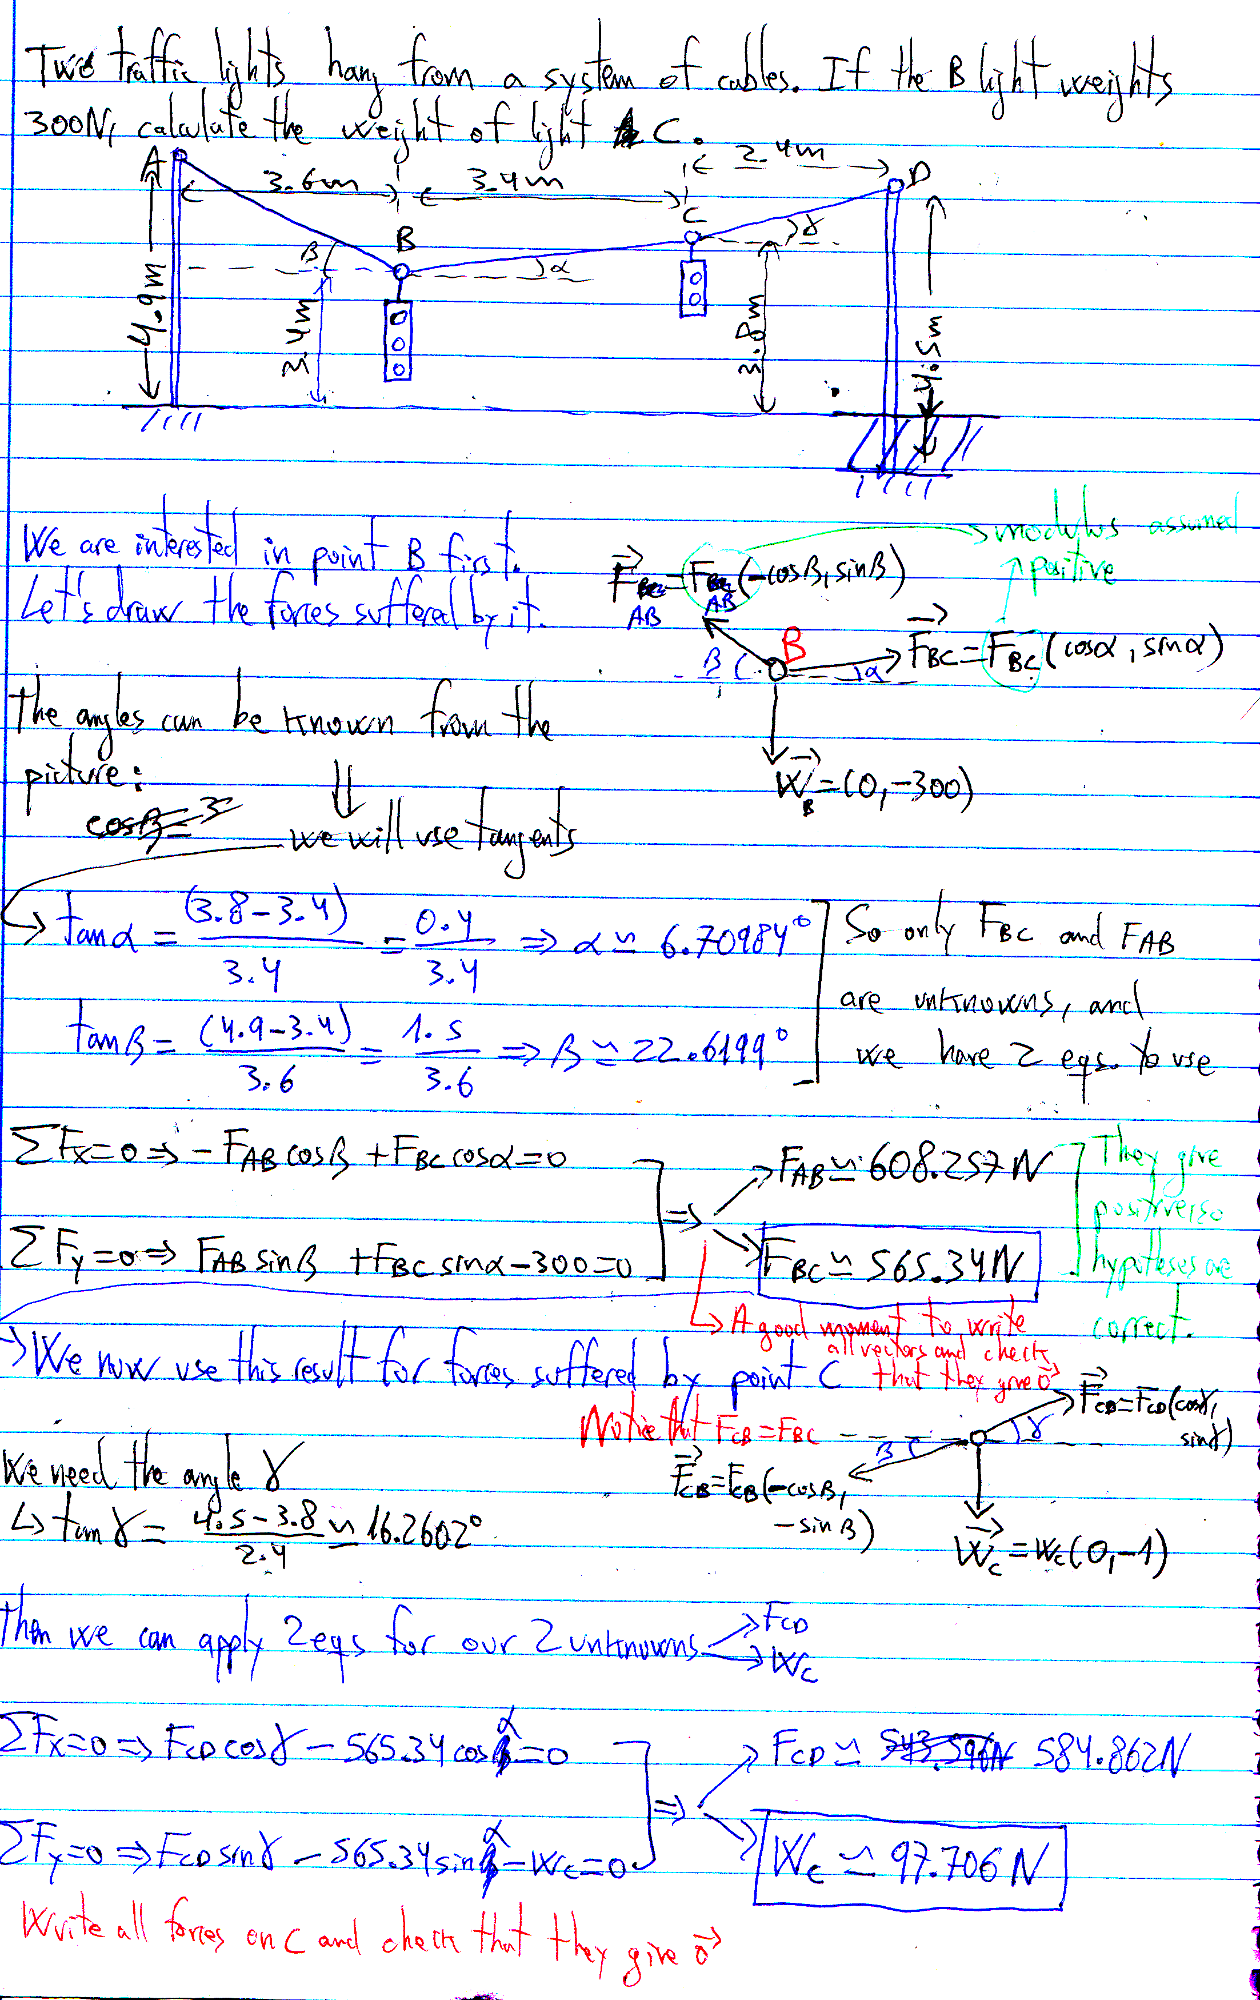 Two traffic lights hang from a system of cables. If the B light weights
300N, calculate the weight of light C.
A 3.6m 3.4m 2.4m D
B C
β α γ
4.9m 3.4m 3.8m 4.5m
We are interested in point B first.
Let's draw the forces suffered by it.
modulus assumed
positive
F_AB = F_AB (-cosβ, sinβ)
B
β α
F_BC = F_BC (cosα, sinα)
W_B = (0, -300)
The angles can be known from the
picture:
cosβ = 3
⇓
we will use tangents
tanα = (3.8-3.4)/3.4 = 0.4/3.4 ⇒ α ≃ 6.70984°
tanβ = (4.9-3.4)/3.6 = 1.5/3.6 ⇒ β ≃ 22.6199°
So only F_BC and F_AB
are unknowns, and
we have 2 eqs. to use
ΣFx=0 ⇒ -F_AB cosβ + F_BC cosα = 0
ΣFy=0 ⇒ F_AB sinβ + F_BC sinα - 300 = 0
⇒
F_AB ≃ 608.257N
F_BC ≃ 565.34N
They give
positive so
hypotheses are
correct.
↳ A good moment to write
all vectors and check
that they give 0⃗
→ We now use this result for forces suffered by point C
Notice that F_CB = F_BC
F_CD = F_CD (cosγ,
sinγ)
β γ
F_CB = F_CB (-cosβ,
-sinβ)
W_C = W_C (0, -1)
We need the angle γ
↳ tanγ = 4.5-3.8/2.4 ≃ 16.2602°
Then we can apply 2 eqs for our 2 unknowns
F_CD
W_C
ΣFx=0 ⇒ F_CD cosγ - 565.34 cosα = 0
ΣFy=0 ⇒ F_CD sinγ - 565.34 sinα - W_C = 0
⇒
F_CD ≃ 584.862N
W_C ≃ 97.706N
Write all forces on C and check that they give 0⃗